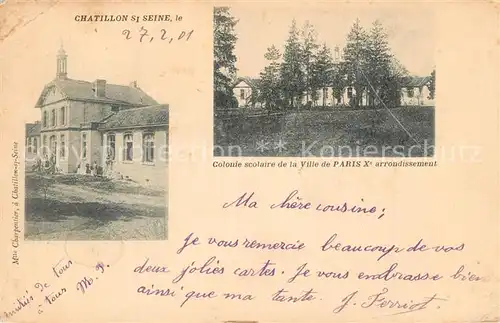 CHATILLON St SEINE, le
27, 2, 01
Colonie scolaire de la Ville de PARIS Xe arrondissement
Mlle Charpentier, à Chatillon-sur-Seine
Ma chère cousine,
Je vous remercie beaucoup de vos
deux jolies cartes. Je vous embrasse bien
ainsi que ma tante. J. Ferriot
de tous
à tous